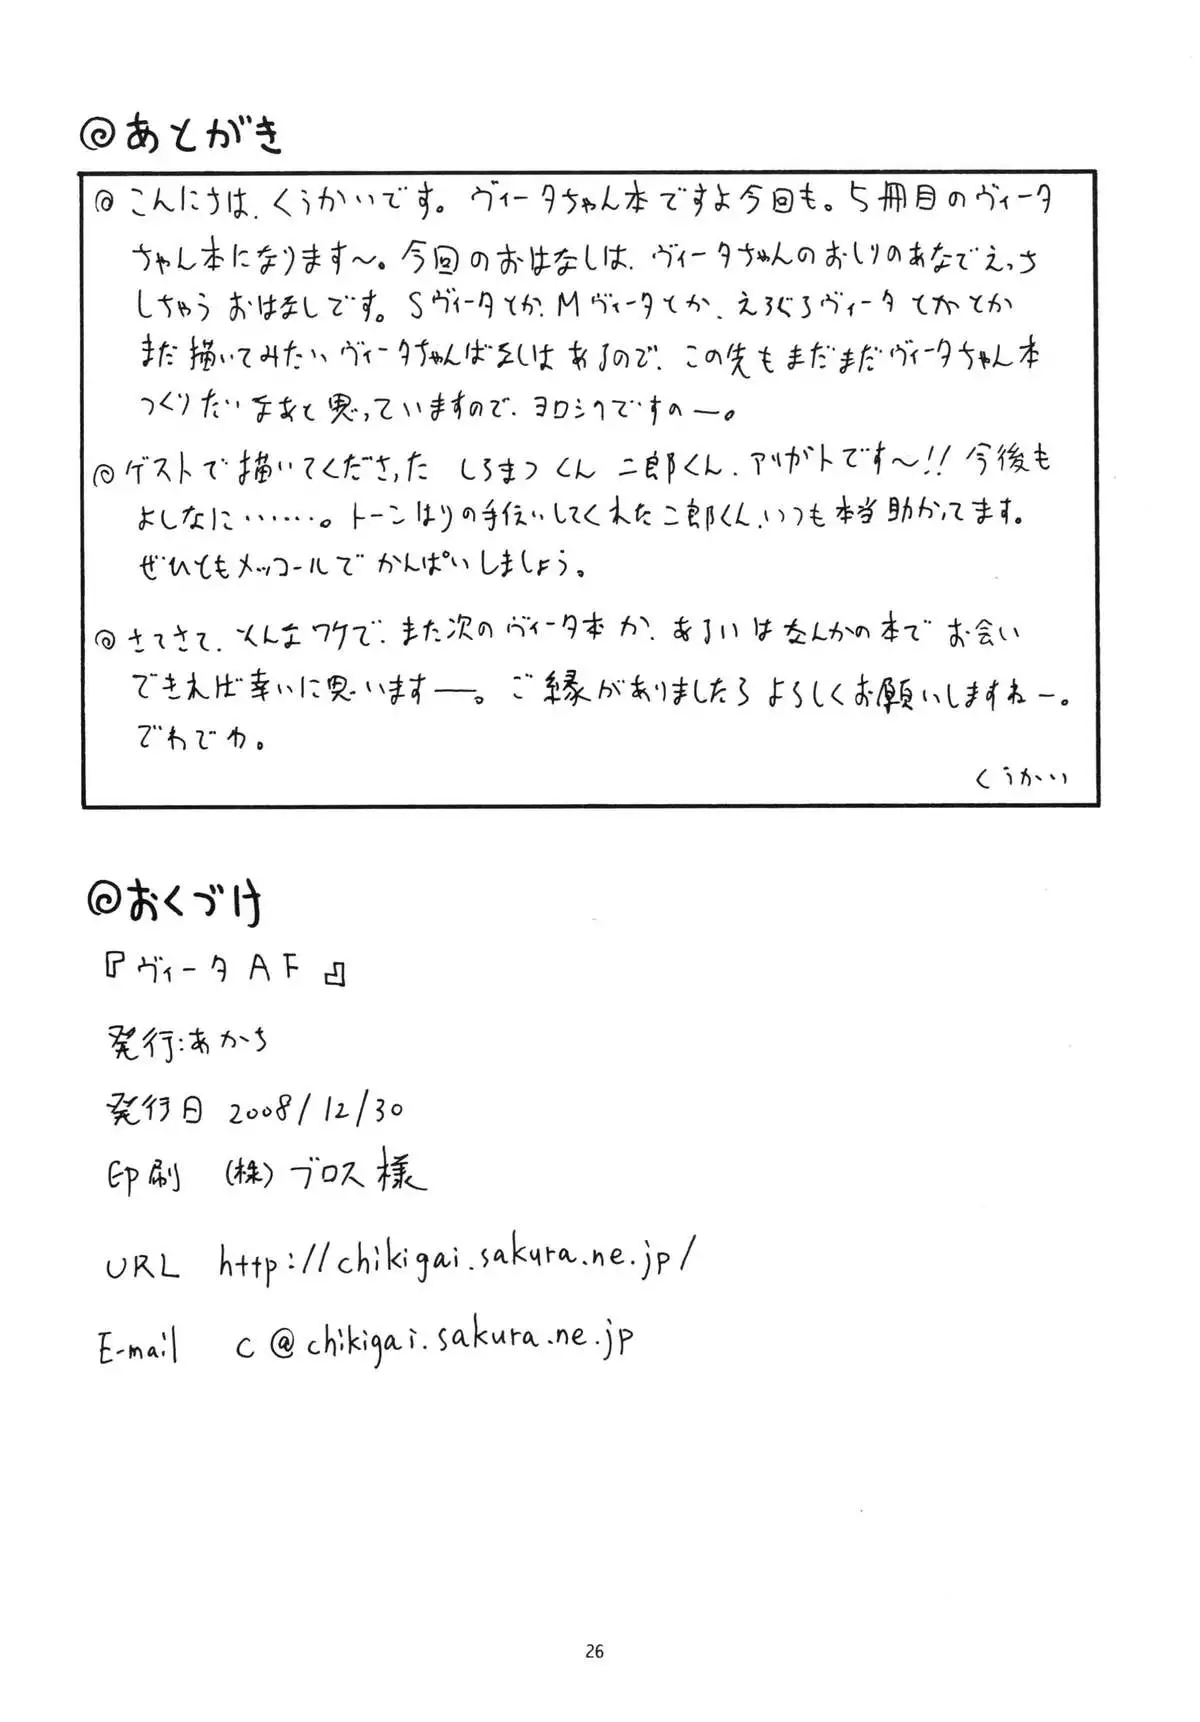 @あとがき
@ こんにちは、くうかいです。ヴィータちゃん本ですよ今回も。5冊目のヴィータ
ちゃん本になります〜。今回のおはなしは、ヴィータちゃんのおしりのあなでえっち
しちゃうおはなしです。Sヴィータとか、Mヴィータとか、えろぐろヴィータとかとか
まだ描いてみたいヴィータちゃんばなしはあるので、この先もまだまだヴィータちゃん本
つくりたいなあと思っていますので、ヨロシクですのー。
@ ゲストで描いてくださった しろまつくん 二郎くん、アリガトです〜!! 今後も
よしなに……。トーンはりの手伝いしてくれた二郎くん、いつも本当助かってます。
ぜひともメッコールでかんぱいしましょう。
@ さてさて、そんなワケで、また次のヴィータ本か、あるいはなんかの本でお会い
できれば幸いに思いますー。ご縁がありましたらよろしくお願いしますねー。
でわでわ。
くうかい
@おくづけ
『ヴィータAF』
発行:あかち
発行日 2008/12/30
印刷 (株)ブロス様
URL http://chikigai.sakura.ne.jp/
E-mail c@chikigai.sakura.ne.jp
26